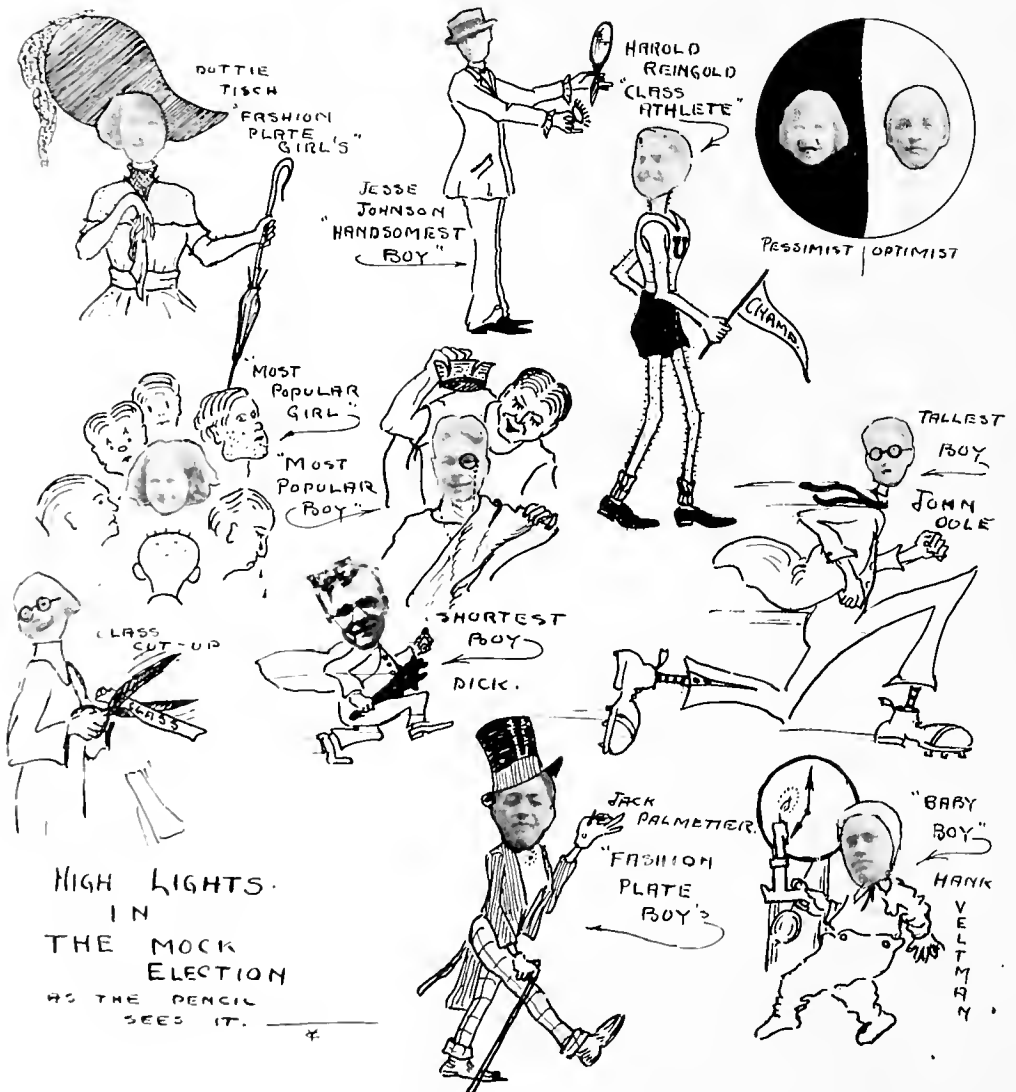 DOTTIE
TISCH
"FASHION
PLATE
GIRL'S"
JESSE
JOHNSON
"HANDSOMEST
BOY"
HAROLD
REINGOLD
"CLASS
ATHLETE"
U
CHAMP.
PESSIMIST | OPTIMIST
"MOST
POPULAR
GIRL"
"MOST
POPULAR
BOY"
TALLEST
BOY
JOHN
COLE
CLASS
CUT-UP
CLASS
SHORTEST
BOY
DICK.
JACK
PALMETIER.
"FASHION
PLATE
BOY'S
"BABY
BOY"
HANK
VELTMAN
HIGH LIGHTS.
IN
THE MOCK
ELECTION
AS THE PENCIL
SEES IT.